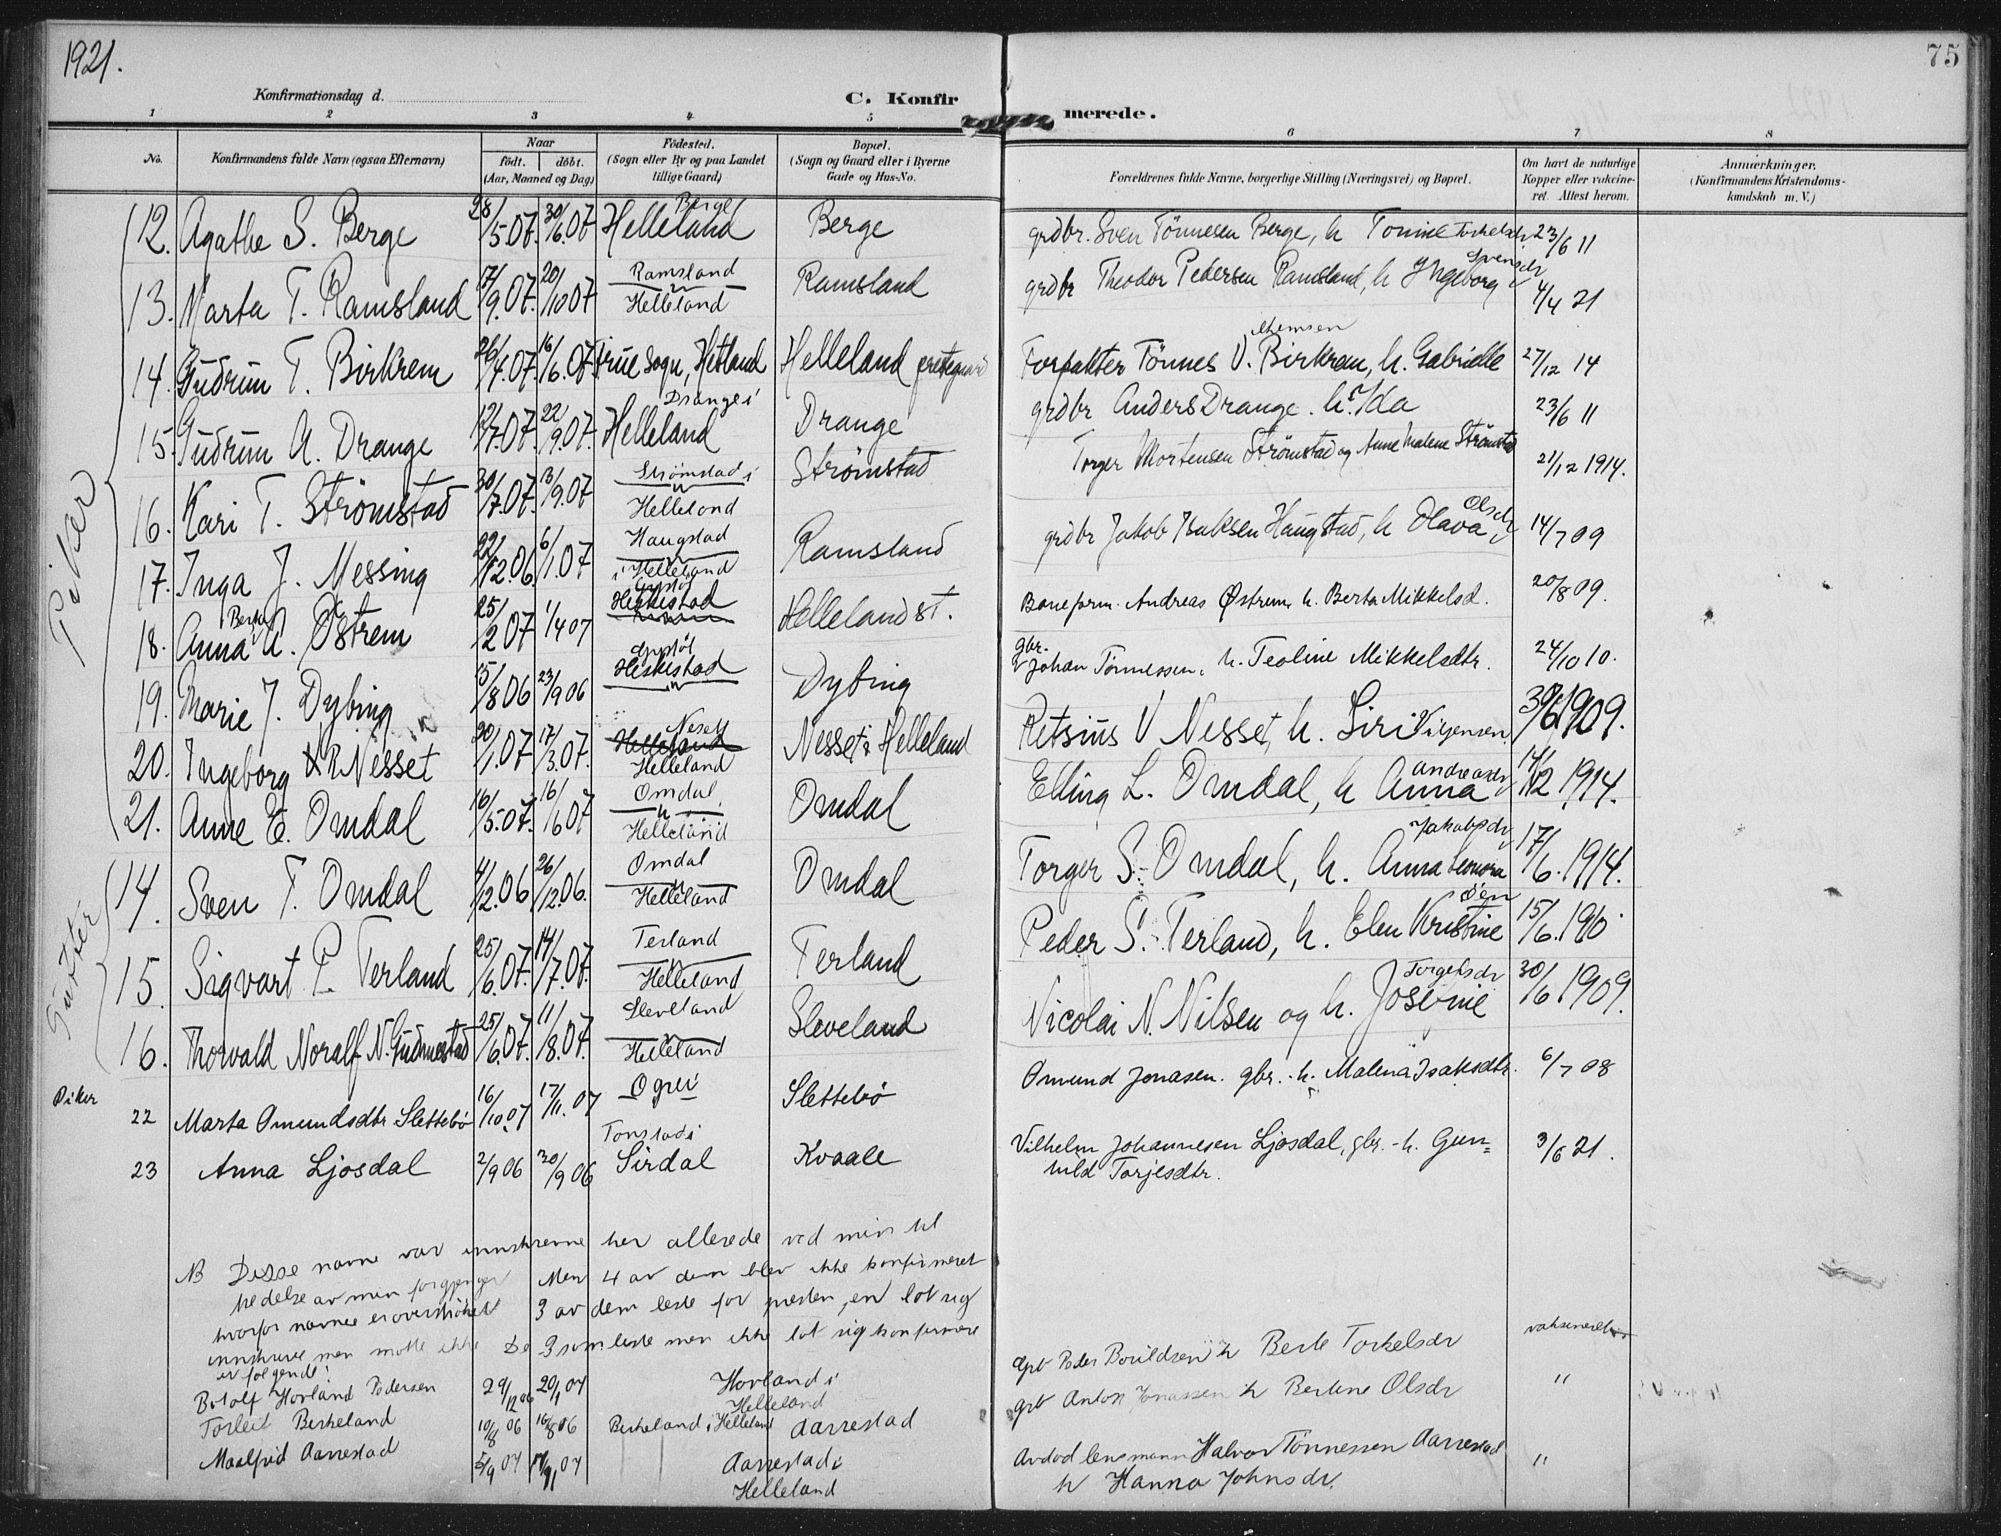 1921.
75
Konfirmationsdag d.
C. Konfirmerede.
1 2 3 4 5 6 7 8
No. Konfirmandens fulde Navn (ogsaa Efternavn) Naar født. døbt. (Aar, Maaned og Dag) Fødested. (Sogn eller By og paa Landet tillige Gaard) Bopæl. (Sogn og Gaard eller i Byerne Gade og Hus-No. Forældrenes fulde Navne, borgerlige Stilling (Næringsvei) og Bopæl. Om havt de naturlige Kopper eller vakcineret. Attest herom. Anmærkninger. (Konfirmandens Kristendomskundskab m. V.)
Piker
12. Agathe S. Berge 28/5 07. 30/6 07 Berge Helleland Berge grdbr. Sven Tønnesen Berge, h Tonine Torkelsdr 23/6 11
13. Marta T. Ramsland 17/9. 07. 20/10 07 Ramsland Helleland Ramsland grdbr Theodor Pedersen Ramsland, h Ingeborg Svensdr 4/4 21
14. Gudrun T. Birkrem 26/4. 07. 16/6. 07 Frue Sogn, Hetland Helleland prestegaard Forpakter Tønnes V. Birkrem, h. Gabrielle 27/12 14
15. Gudrun A. Drange 12/7. 07. 22/9. 07. Drange i Helleland Drange grdbr Anders Drange. h. Ida 23/6 11
16. Kari T. Strømstad 30/7. 07. 13/9. 07 Strømstad i Helleland Strømstad Torger Mortensen Strømstad og Anne Malene Strømstad 21/12 1914.
17. Inga J. Messing 22/12. 06. 6/1. 07 Haugstad i Helleland Ramsland grdbr Jakob Isaksen Haugstad, h Olava Olsdr 14/7 09
18. Anna Berta A. Østrem 25/2 07 1/4 07 Heskestad Helleland st. Baneform. Andreas Østrem, h. Berta Mikkelsd. 20/8 09.
19. Marie J. Dybing 15/8 06 23/9 06 Heskestad Dybing gbr. Johan Tønnessen. h. Teoline Mikkelsdtr. 24/10 10.
20. Ingeborg R Nesset 20/1. 07 17/3. 07. Neset Helleland Helleland Nesset i Helleland Retsius V Nesset, h. Siri 30/6 1909.
21. Anne E. Omdal 16/5. 07. 16/6 07 Omdal Helleland Omdal Elling L. Omdal, h Anna Andreasdr 14/12 1914.
Gutter
14. Sven T. Omdal 4/12. 06 26/12. 06. Omdal Helleland Omdal Torger S. Omdal, h. Anna Leonora Jakobsdr 17/6. 1914.
15. Sigvart P. Terland 25/6. 07. 14/7. 07. Terland Helleland Terland Peder S. Terland, h. Elen Kristine 15/6. 1910
16. Thorvald Noralf N. Gudmestad 25/6. 07. 11/8. 07. Sleveland Helleland Sleveland Nicolai N. Nilsen og h. Josefine Torgersdr 30/6 1909.
Piker
22 Marta Omundsdtr Slettebø 16/10. 07 17/11. 07 Ogrei Slettebø Omund Jonasen. gbr. - h. Malena Isaksdtr. 6/7 08
23 Anna Ljosdal 2/9 06 30/9 06 Tonstad i Sirdal Kvaale Vilhelm Johannesen Ljosdal, gbr. - h. Gunhild Torjesdtr. 3/6 21.
NB Disse navne var innskrevne her allerede ved min til
tredelse av min forgjenger Men 4 av dem blev ikke konfirmeret
hvorfor navnee er overstrøket 3 av dem leste for presten, en lot sig
innskrive men møtte ikke De 3 som leste men ikke lot sig konfirmere
er følgende:
Botolf Hovland Pedersen 29/12 06 20/1 07 Hovland i Helleland grb Peder Bouildsen h Berte Torkelsdr vaksineret
Torleif Birkeland 10/8 06 16/8 06 Birkeland i Helleland Aarrestad grb Anton Jonassen h Bertine Olsdr "
Maalfrid Aarrestad 5/9 07 Aarrestad i Helleland Avdød lensmann Halvor Tønnessen Aarrestad h Hanna Johnsdr. "